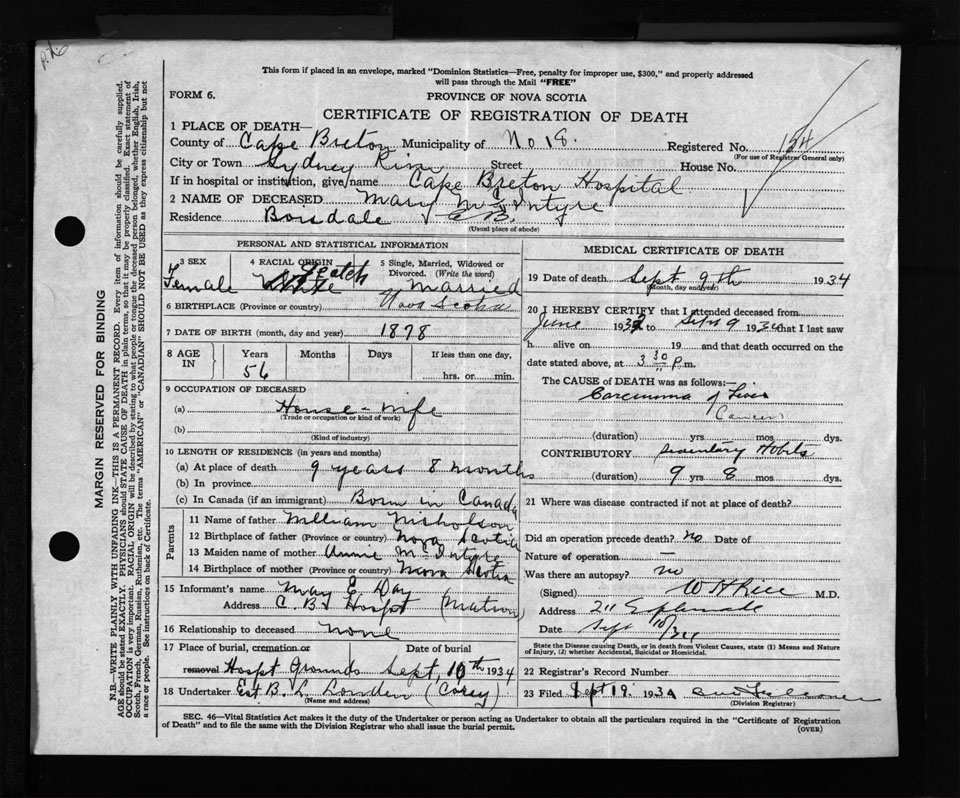 This form if placed in an envelope, marked "Dominion Statistics—Free, penalty for improper use, $300," and properly addressed
will pass through the Mail "FREE"
FORM 6.
PROVINCE OF NOVA SCOTIA
CERTIFICATE OF REGISTRATION OF DEATH
1 PLACE OF DEATH—
County of Cape Breton Municipality of No 18. Registered No. 154
(For use of Registrar General only)
City or Town Sydney River Street House No.
If in hospital or institution, give name Cape Breton Hospital
2 NAME OF DECEASED Mary McIntyre
Residence Boisdale C.B.
(Usual place of abode)
PERSONAL AND STATISTICAL INFORMATION
3 SEX 4 RACIAL ORIGIN 5 Single, Married, Widowed or
Divorced. (Write the word)
Female White Scotch Married
6 BIRTHPLACE (Province or country) Nova Scotia
7 DATE OF BIRTH (month, day and year) 1878
8 AGE IN Years Months Days If less than one day,
56 hrs. or min.
9 OCCUPATION OF DECEASED
(a) House-wife
(Trade or occupation or kind of work)
(b)
(Kind of industry)
10 LENGTH OF RESIDENCE (in years and months)
(a) At place of death 9 years 8 months
(b) In province
(c) In Canada (if an immigrant) Born in Canada
Parents
11 Name of father William Nicholson
12 Birthplace of father (Province or country) Nova Scotia
13 Maiden name of mother Annie McIntyre
14 Birthplace of mother (Province or country) Nova Scotia
15 Informant's name Mary E Day
Address C. B. Hospt (Matron)
16 Relationship to deceased none
17 Place of burial, cremation or Date of burial
removal Hospt Grounds Sept, 10th 1934
18 Undertaker Est B. L. (Corey)
(Name and address)
MEDICAL CERTIFICATE OF DEATH
19 Date of death Sept 9th 1934
(Month, day and year)
20 I HEREBY CERTIFY that I attended deceased from
June 193 to Sept 9 1934 that I last saw
h alive on 19 and that death occurred on the
date stated above, at 3 30 P.m.
The CAUSE of DEATH was as follows:—
Carcinoma of Liver
Cancer
(duration) yrs mos dys.
CONTRIBUTORY Sedentary Habits
(duration) 9 yrs 8 mos dys.
21 Where was disease contracted if not at place of death?
Did an operation precede death? No Date of
Nature of operation —
Was there an autopsy? no
(Signed) W H Rice M.D.
Address 211 Esplanade
Date Sept 10/34
State the Disease causing Death, or in death from Violent Causes, state (1) Means and Nature
of Injury, (2) whether Accidental, Suicidal or Homicidal.
22 Registrar's Record Number
23 Filed Sept 19. 1934
(Division Registrar)
SEC. 46—Vital Statistics Act makes it the duty of the Undertaker or person acting as Undertaker to obtain all the particulars required in the "Certificate of Registration
of Death" and to file the same with the Division Registrar who shall issue the burial permit.
(OVER)
MARGIN RESERVED FOR BINDING
N.B.—WRITE PLAINLY WITH UNFADING INK—THIS IS A PERMANENT RECORD. Every item of information should be carefully supplied.
AGE should be stated EXACTLY. PHYSICIANS should STATE CAUSE OF DEATH in plain terms, so that it may be properly classified. Exact statement of
OCCUPATION is very important. RACIAL ORIGIN will be described by stating to what people or tongue the deceased person belonged, whether English, Irish,
Scotch, French, German, Russian, Ruthenian, etc. The terms "AMERICAN" or "CANADIAN" SHOULD NOT BE USED as they express citizenship but not
a race or people. See instructions on back of Certificate.